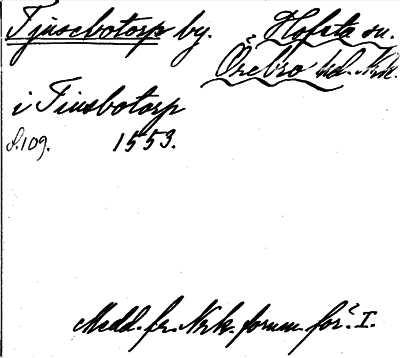 Tjusebotorp by. Hofsta sn.
Örebro hd. Nrk.
i Tiusbotorp
s.109. 1553.
Medd. fr. Nrk. fornm. för. I.